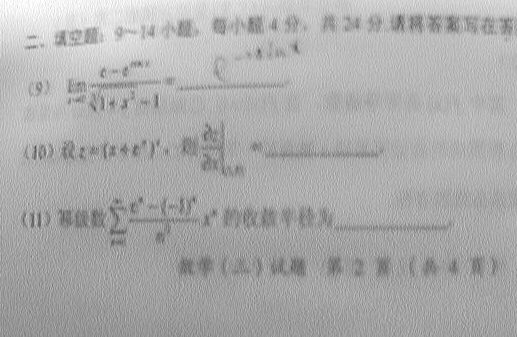 二、填空题：9～14小题，每小题4分，共24分.请将答案写在答
(9) lim x→0 (e－e^{cos x})/(∛(1＋x²)－1)＝________.
(10) 设z＝(x＋e^y)^x，则∂z/∂x|＝________.
(11) 幂级数∑_{n=1}^{∞} (e^n－(－1)^n)/n² x^n 的收敛半径为________.
数学(三)试题 第 2 页 (共 4 页)